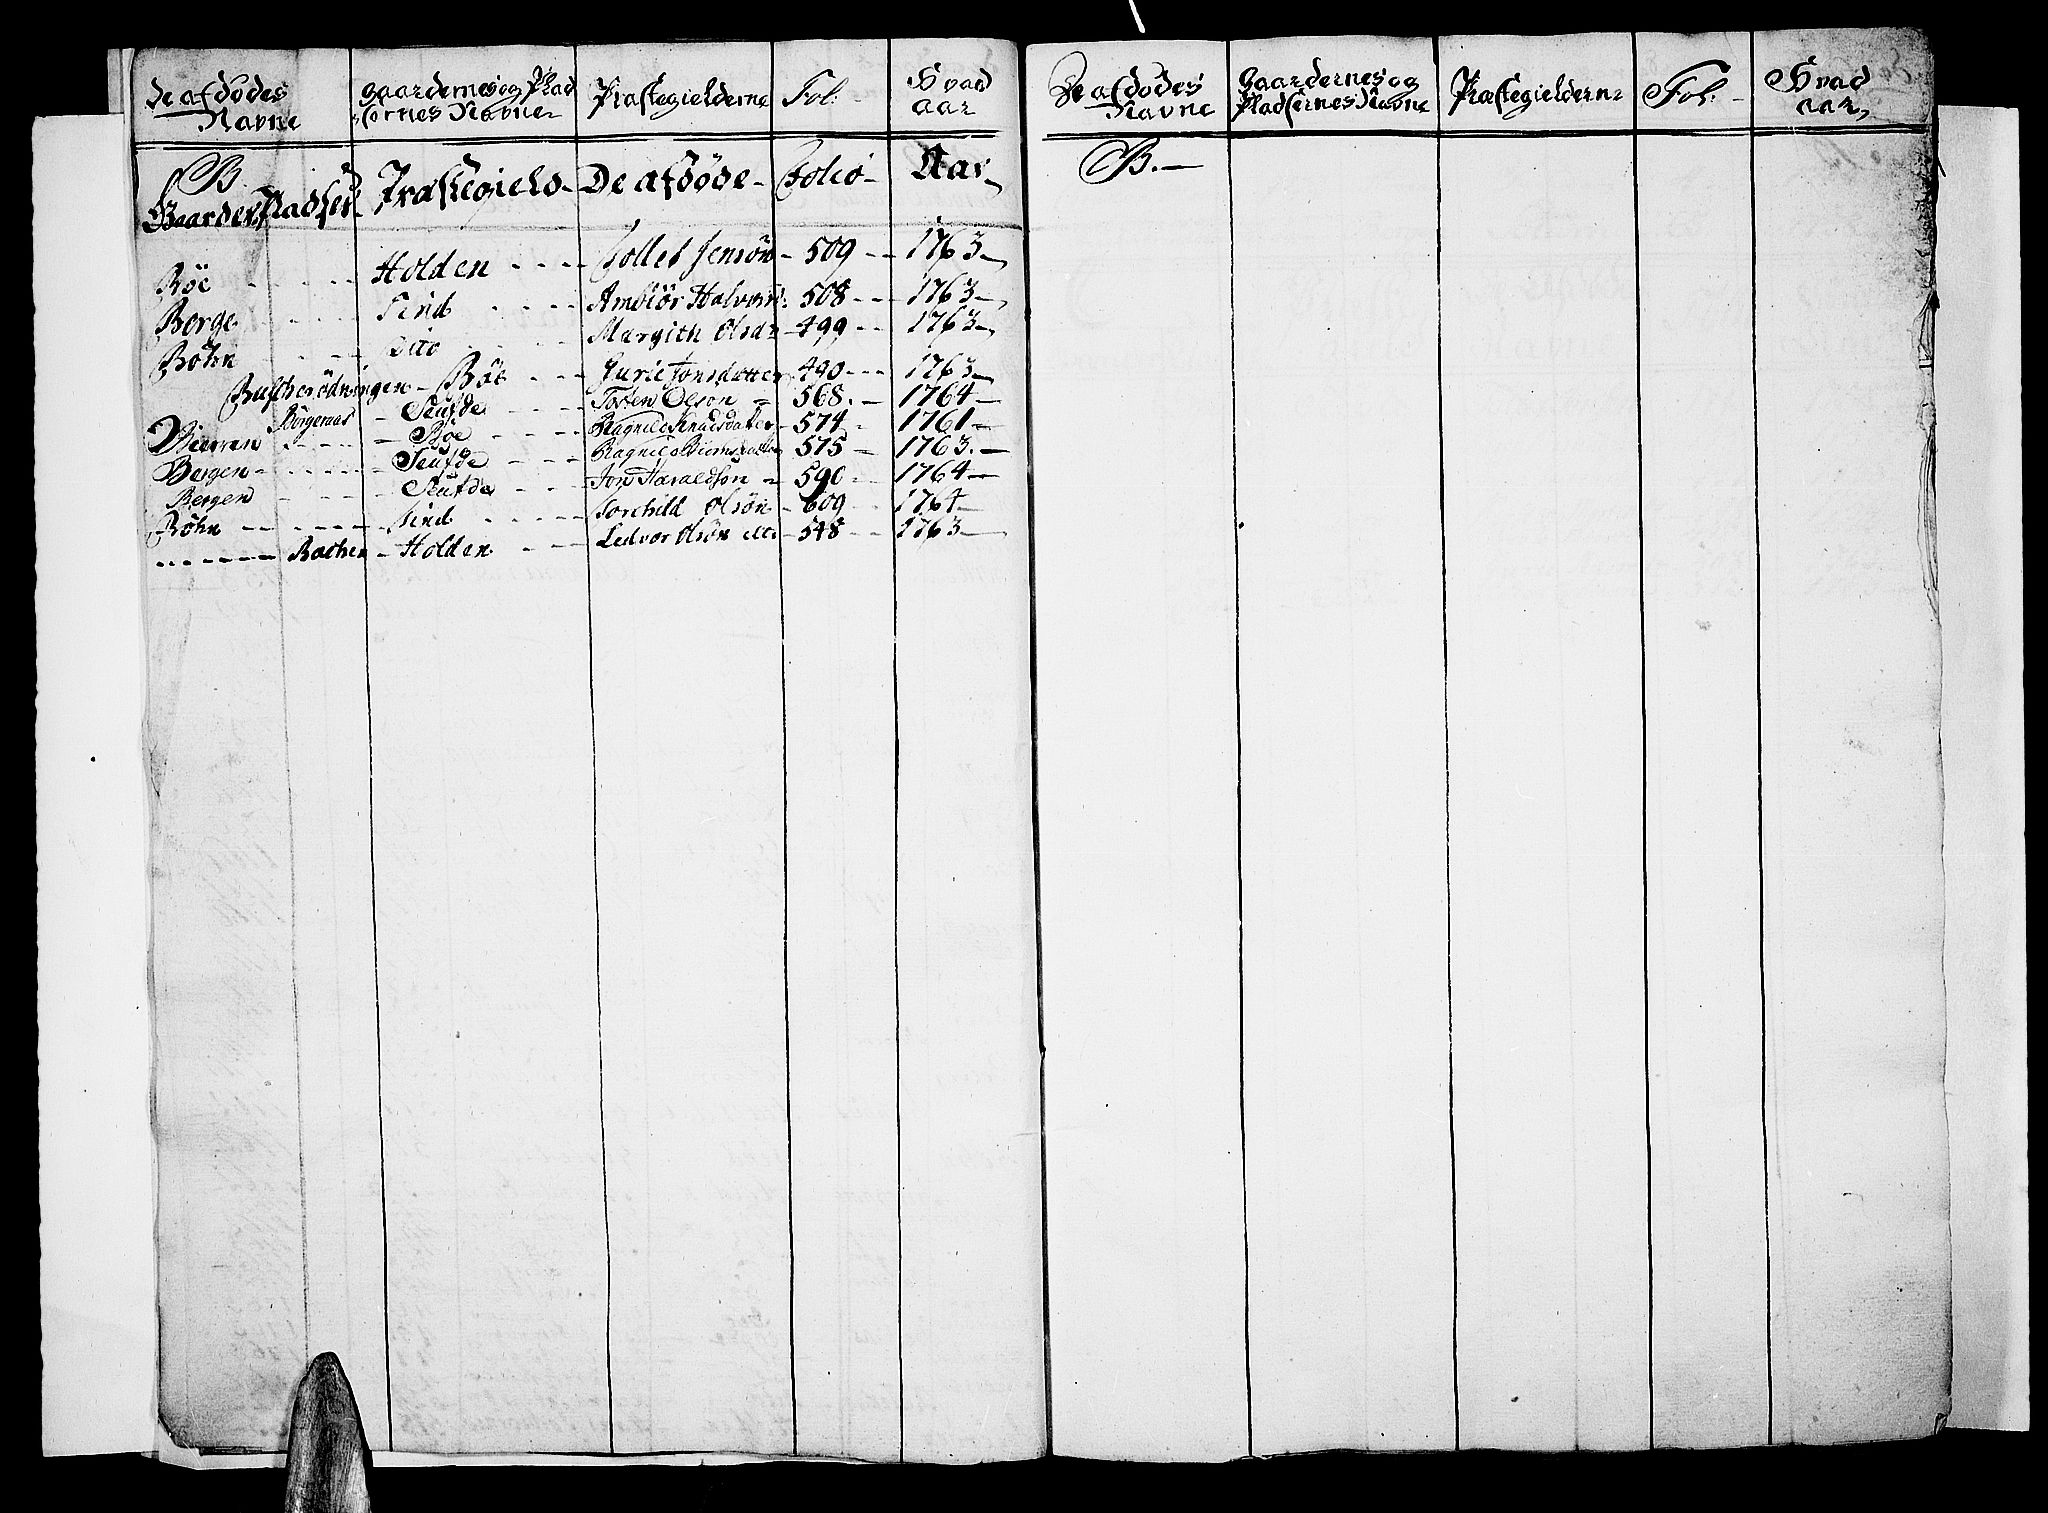 De afdødes Navne | Gaardernes og Pladsernes Navne | Præstegielderne | Fol: | Hvad aar
B.
Gaarder | Pladser | Præstegield | De afdøde | Folio | Aar
Böe - - - - - Holden - - - - Tollef Jensön - 509 - - 1763
Borge - - - - Sind - - - - Ambiör Halvors: - 508 - - 1763
Böhn - - - - Dito - - - - Margith Olsdr - 499 - - 1763
Böe - - - Gurie Jonsdatter - 490 - - - 1763
Börgernæs - Seufde - - - - Tosten Olson - 568. - 1764
Bierren - - - - Böe - - - - Ragnild Knudsdatter - 574 - 1761
Bergen - - - - - Seufde - - - Ragnild - 575 - 1763.
Bergen - - - - Seufde - - - Jon Haraldson - 590 - - 1764
Böhn - - - - - - Sind - - - - Torchild Olsön - 609 - - 1764
- - - - - - - Bachen - Holden - - - Ledvor Olsön - 548 - - 1763
De afdødes Navne | Gaardernes og Pladsernes Navne | Præstegielderne | Fol: | Hvad aar
B.